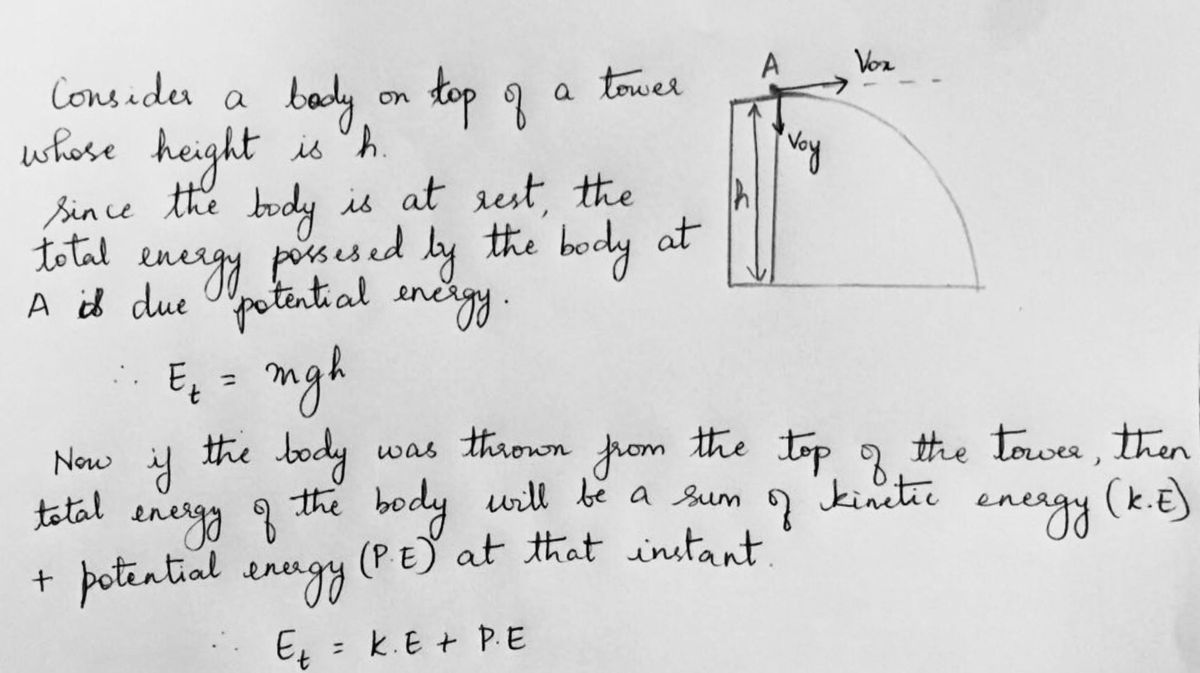 Consider a body on top of a tower
whose height is h.
Since the body is at rest, the
total energy possesed by the body at
A is due potential energy.
∴ Et = mgh
Now if the body was thrown from the top of the tower, then
total energy of the body will be a sum of kinetic energy (k.E)
+ potential energy (P.E) at that instant.
∴ Et = K.E + P.E
A
Vox
Voy
h